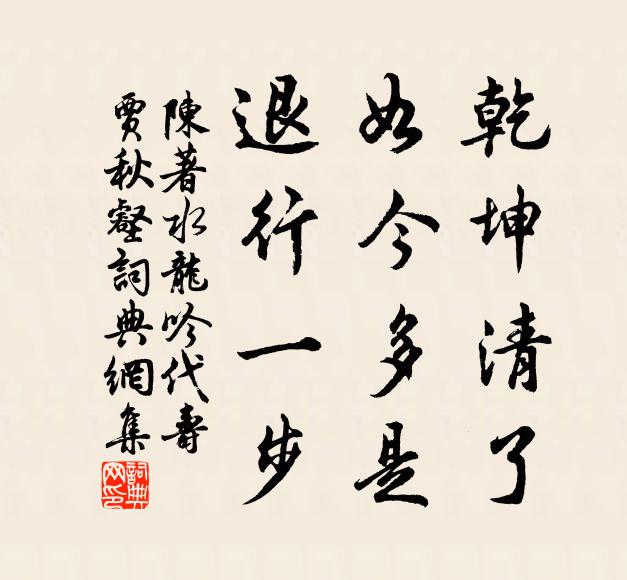 乾坤清了
如今多是
退行一步
陳著水龍吟代壽
賈秋壑詞典網集
詞典
网印